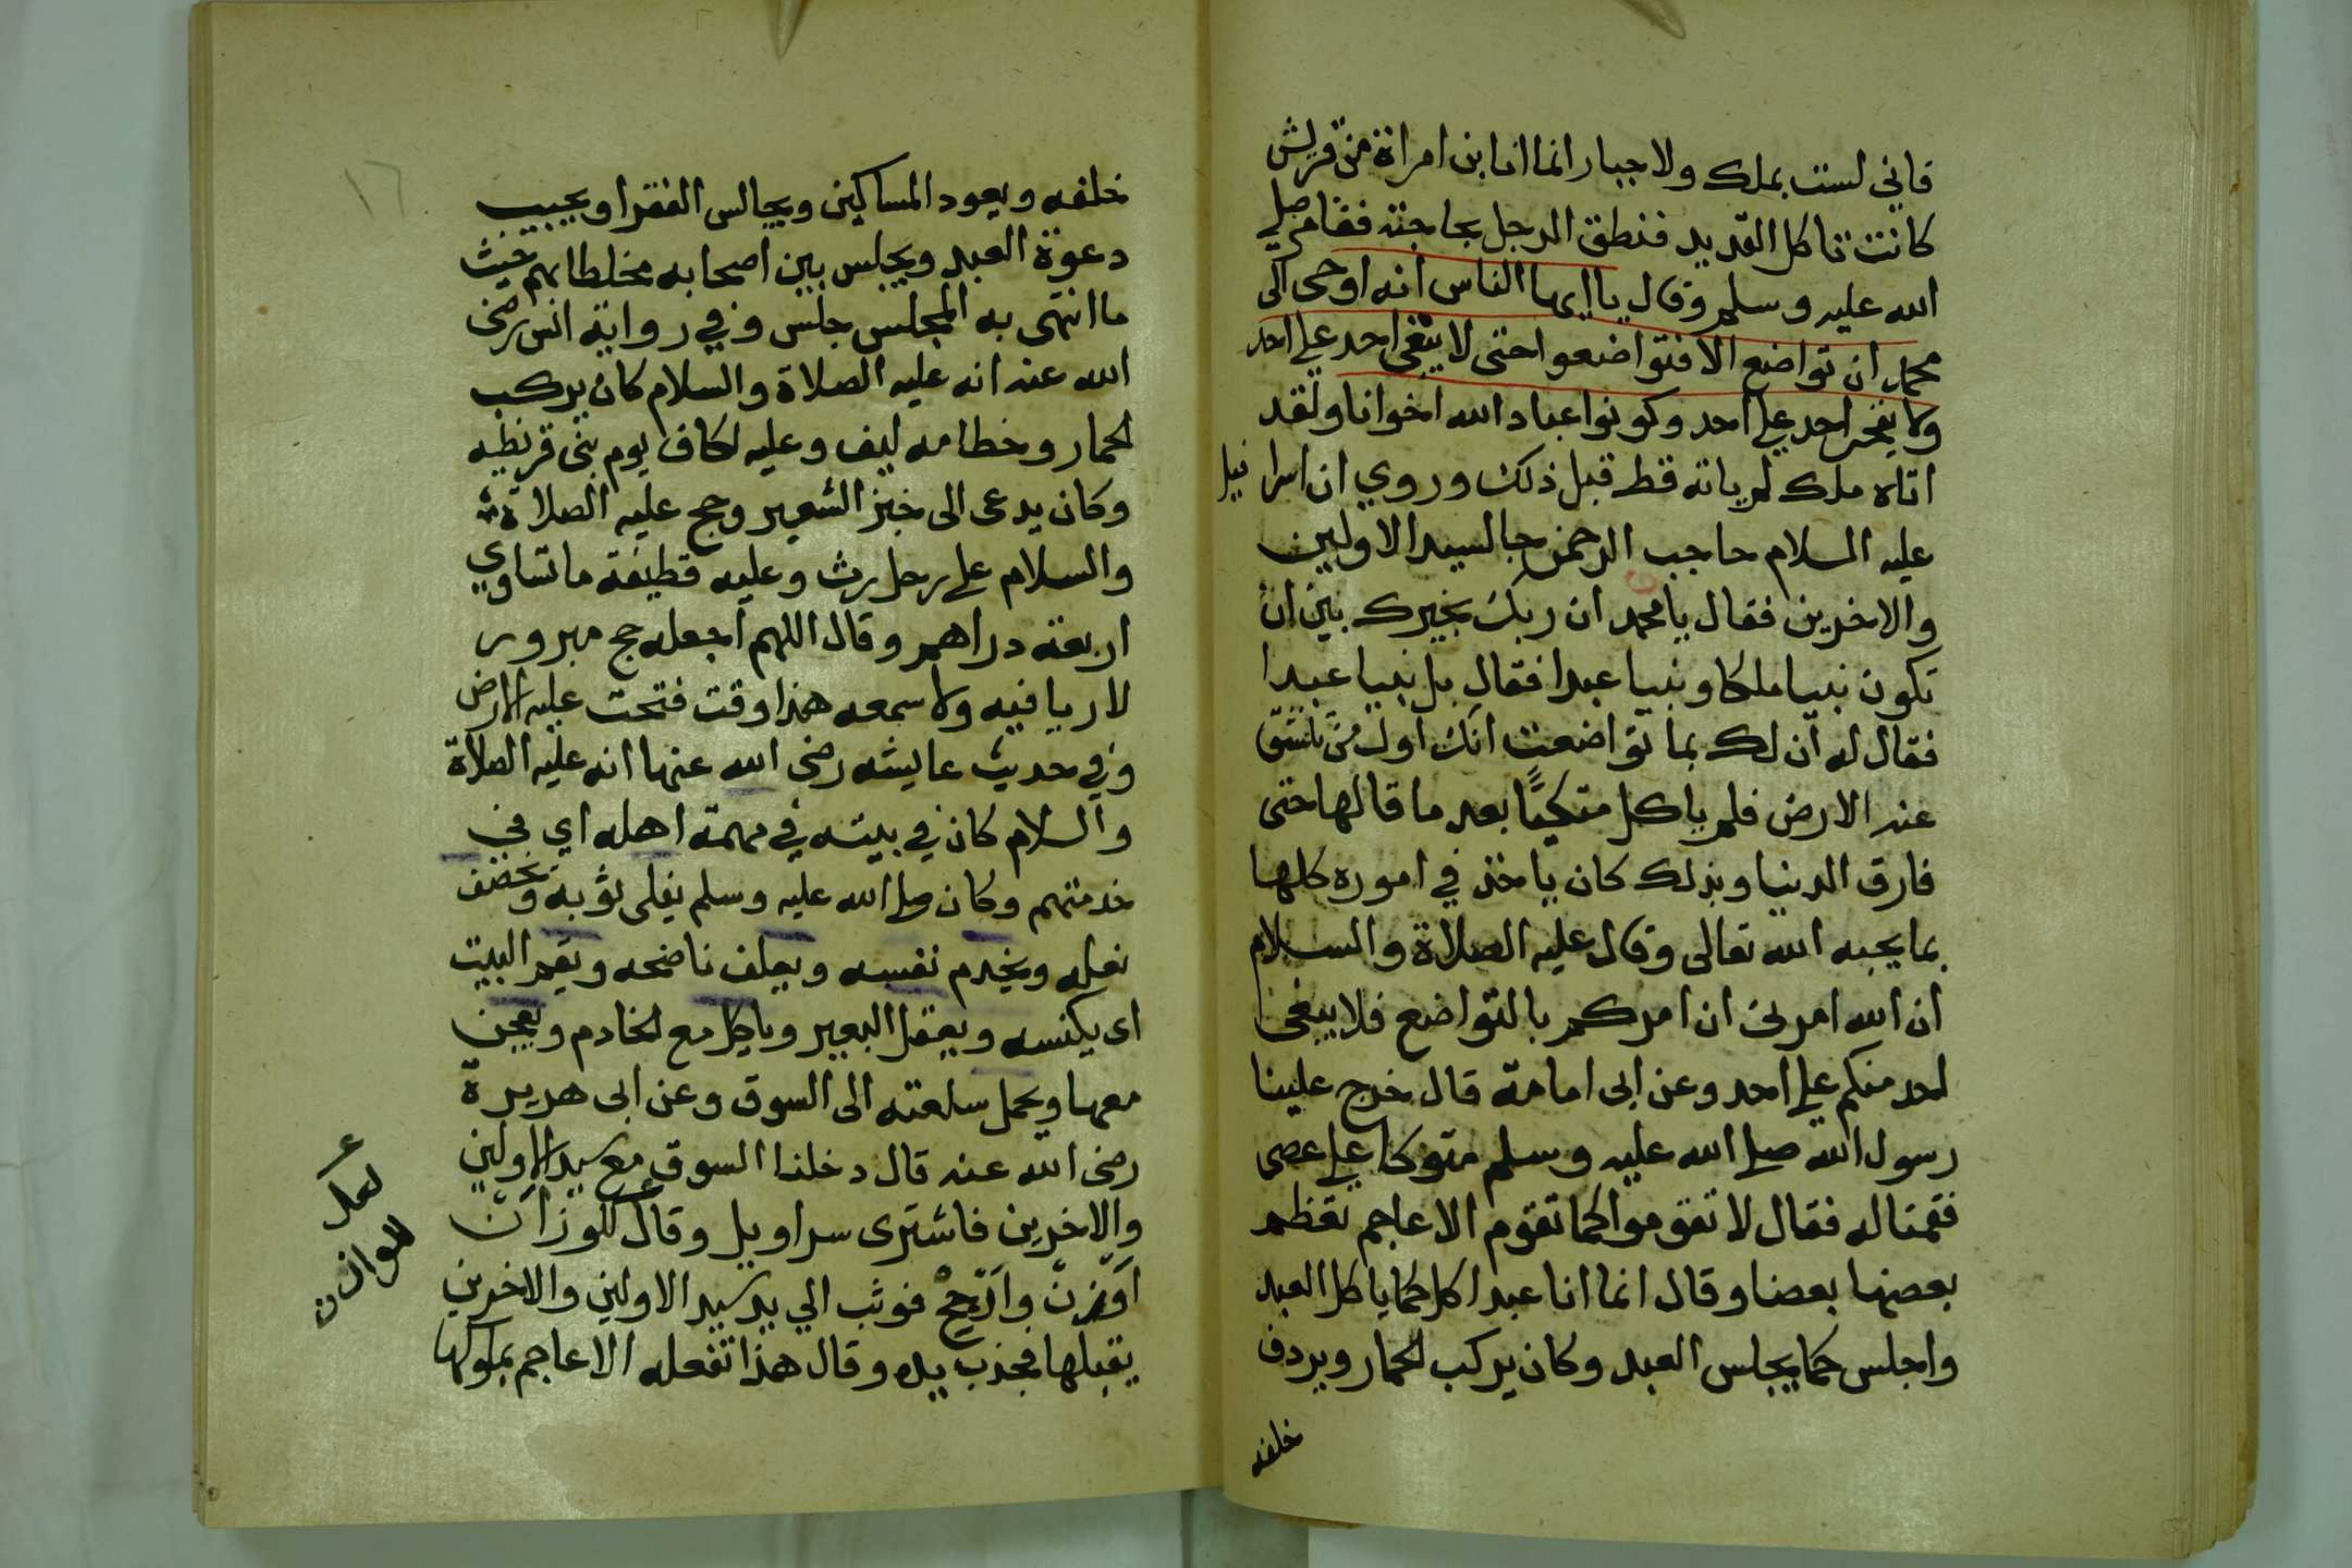 فاني لست بملك ولا جبار انما انا بن امراة من قريش
كانت تاكل القديد فنطق الرجل بحاجته فقام صلى
الله عليه وسلم وقال يا ايها الناس انه اوحى الى
محمد ان تواضع الا فتواضعوا حتى لا يبغى احد على احد
ولا يفخر احد على احد وكونوا عباد الله اخوانا ولقد
اتاه ملك لم ياته قط قبل ذلك وروي ان اسرافيل
عليه السلام حاجب الرحمن جا لسيد الاولين
والاخرين فقال يا محمد ان ربك يخيرك بين ان
تكون نبيا ملكا ونبيا عبدا فقال بل نبيا عبدا
فقال له ان لك بما تواضعت انك اول من تنشق
عنه الارض فلم ياكل متكيًا بعد ما قالها حتى
فارق الدنيا وبذلك كان ياخذ في اموره كلها
بما يحبه الله تعالى وقال عليه الصلاة والسلام
ان الله امرنى ان امركم بالتواضع فلا يبغى
احد منكم على احد وعن ابى امامة قال خرج علينا
رسول الله صلى الله عليه وسلم متوكا على عصى
فقمنا له فقال لا تقوموا كما تقوم الاعاجم تعظم
بعضها بعضا وقال انما انا عبد اكل كما ياكل العبد
واجلس كما يجلس العبد وكان يركب الحمار ويردف
خلفه
١٦
خلفه ويعود المساكين ويجالس الفقرا ويجيب
دعوة العبد ويجلس بين اصحابه مختلطا بهم حيث
ما انتهى به المجلس جلس وفي رواية انس رضى
الله عنه انه عليه الصلاة والسلام كان يركب
الحمار وخطامه ليف وعليه اكاف يوم بنى قريظه
وكان يدعى الى خبز الشعير وحج عليه الصلاة
والسلام على رحل رث وعليه قطيفة ما تساوي
اربعة دراهم وقال اللهم اجعله حج مبرور
لا ريا فيه ولا سمعه هذا وقت فتحت عليه الارض
وفي حديث عايشه رضى الله عنها انه عليه الصلاة
والسلام كان في بيته في مهمة اهله اي في
خدمتهم وكان صلى الله عليه وسلم يفلى ثوبه ويخصف
نعله ويخدم نفسه ويعلف ناضحه ويقم البيت
اى يكنسه ويعقل البعير وياكل مع الخادم ويعجن
معها ويحمل سلعته الى السوق وعن ابى هريرة
رضى الله عنه قال دخلنا السوق مع سيد الاولين
والاخرين فاشترى سراويل وقال للوزان
اوزن وارجح فوثب الي يد سيد الاولين والاخرين
يقبلها فجذب يده وقال هذا تفعله الاعاجم بملوكها